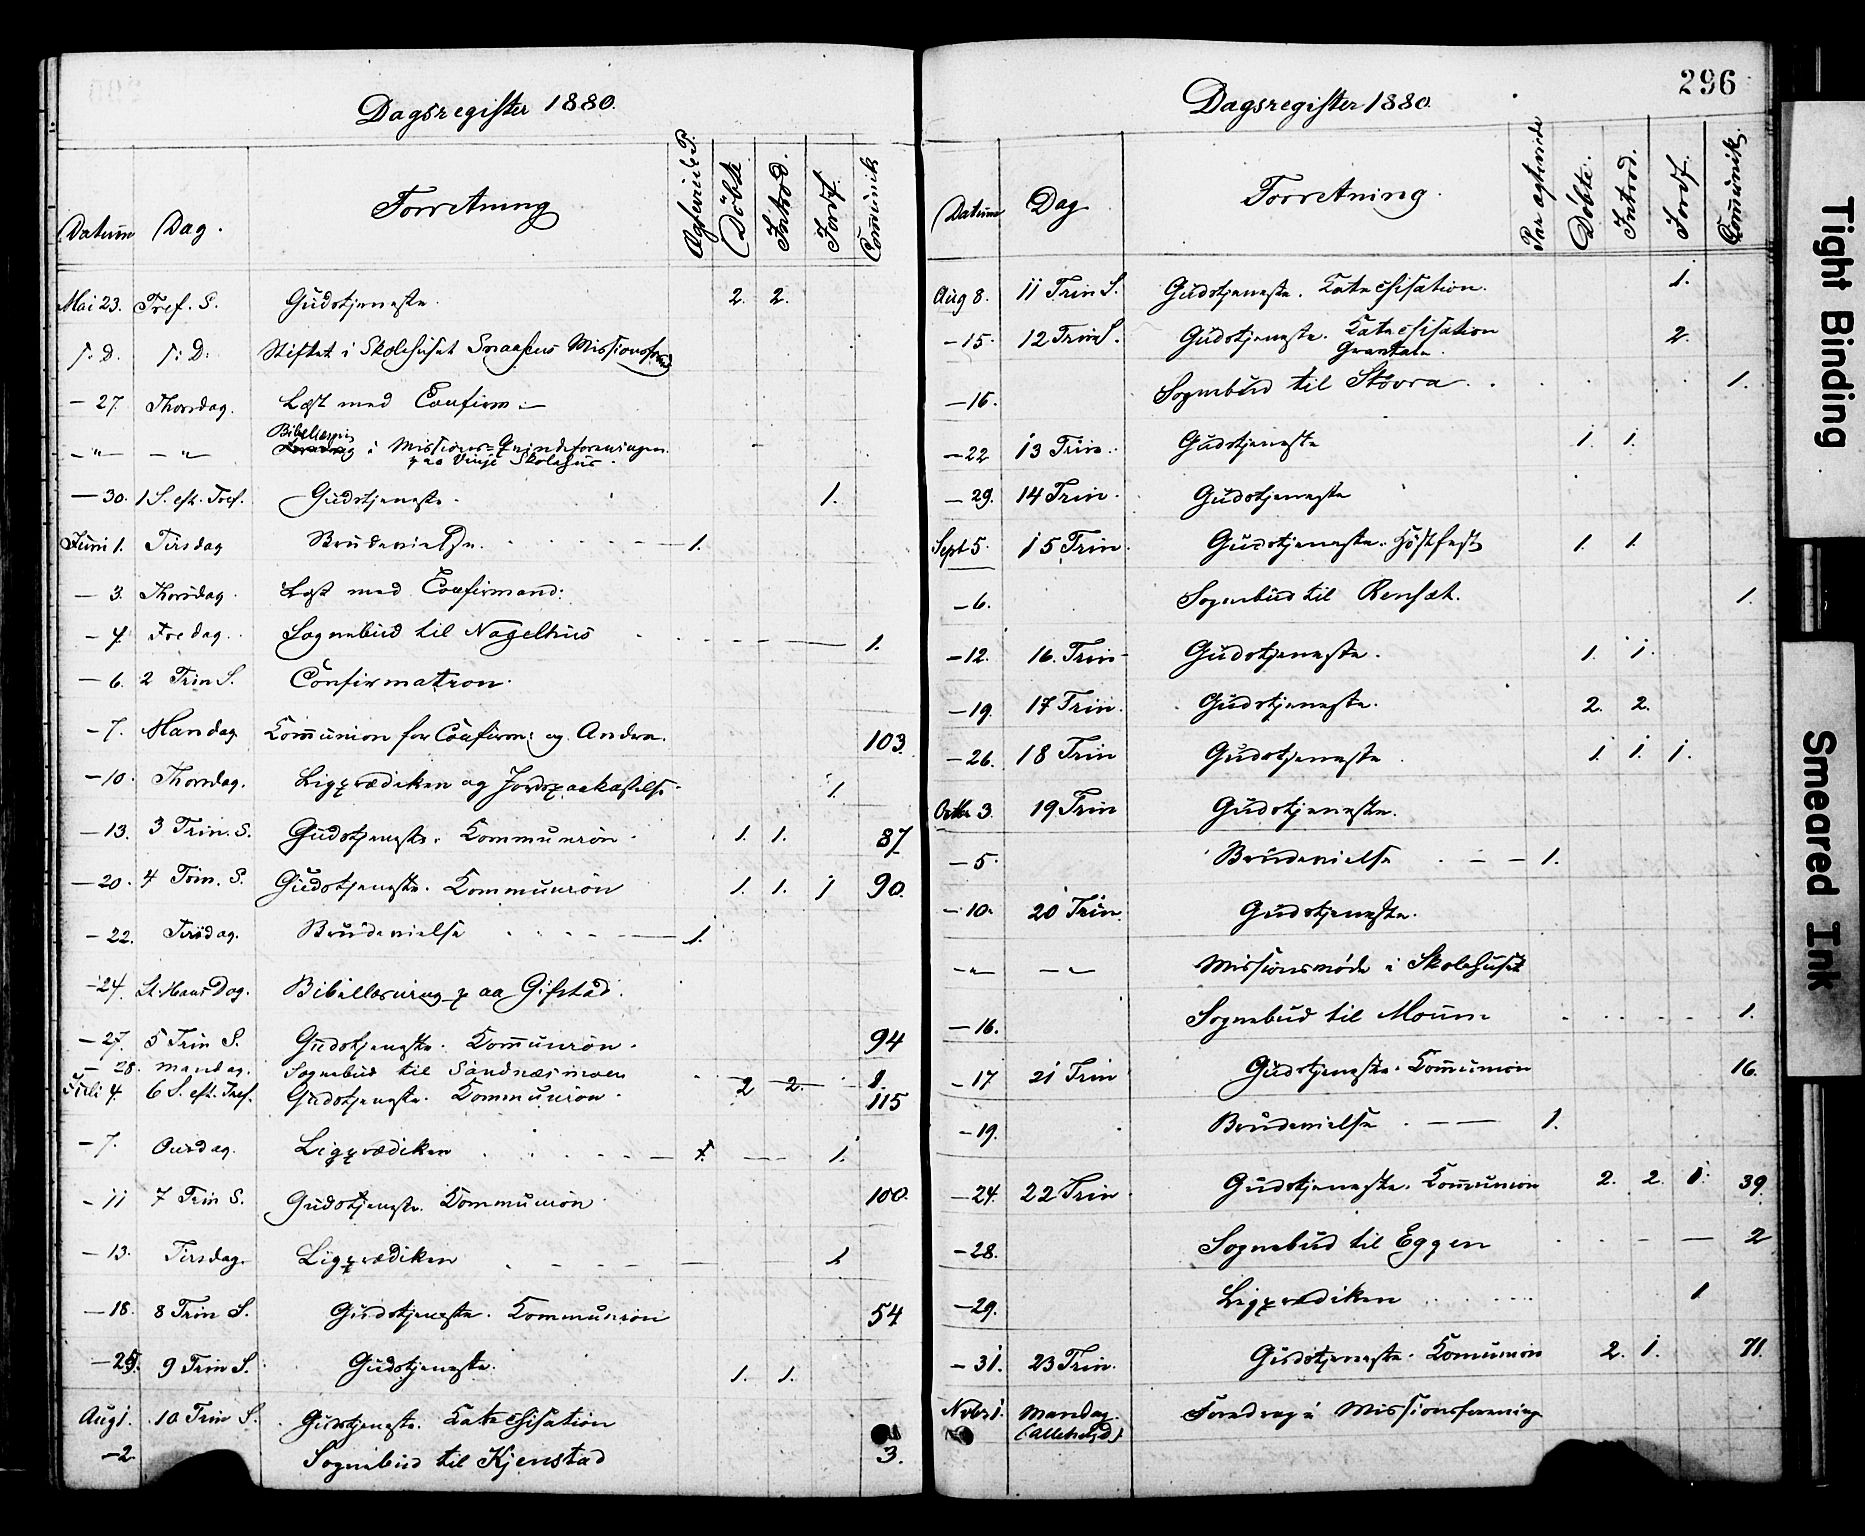 Dagsregister 1880.
Datum Dag. Forretning Ægtevied. P. Döbte Introd. Jordf. Commünik
Mai 23. Tref. S. Gudstjeneste. 2. 2.
S: D. S: D. Stiftet i Skolehuset Snaasens Missionsf
- 27. Thorsdag. Læst med Confirm:
- " - - " - Bibellæsning i Missions-Qvindeforeningen
paa Vinje Skolehus.
- 30. 1 S. eft. Tref. Gudstjeneste. 1.
Juni 1. Tirsdag Brudevielse. 1.
- 3. Thorsdag. Læst med Confirmand:
- 4. Fredag. Sognebud til Nagelhus 1.
- 6. 2 Trin S. Confirmation.
- 7. Mandag Communion for Confirm: og Andre. 103.
- 10. Thorsdag. Ligprædiken og Jordspaakastelse. 1.
- 13. 3 Trin. S. Gudstjeneste. Kommunion. 1. 1. 87
- 20. 4 Trin. S. Gudstjeneste. Kommunion 1. 1. 1 90.
- 22. Tirsdag. Brudevielse 1.
- 24. St. Hans Dag. Bibellæsning paa Gifstad.
- 27. 5 Trin S. Gudstjeneste. Kommunion. 94
- 28. Mandag. Sognebud til Sandnæsmoen 1.
Juli 4. 6 S. eft. Tref. Gudstjeneste. Kommunion. 2 2. 115
- 7. Onsdag. Ligprædiken 1.
- 11 7 Trin S. Gudstjeneste. Kommunion 100.
- 13. Tirsdag. Ligprædiken 1
- 18. 8 Trin S. Gudstjeneste. Kommunion 54
- 25. 9 Trin S. Gudstjeneste. 1. 1.
Aug 1. 10 Trin S. Gudstjeneste. Katechisation
- 2 Sognebud til Kjenstad 3.
296
Dagsregister 1880.
Datum Dag Forretning. Par ægteviede Döbte. Introd. Jordf. Commünik.
Aug 8. 11 Trin S. Gudstjeneste. Katechisation. 1.
- 15. 12 Trin S. Gudstjeneste. Katechisation 2.
Grantale.
- 16. Sognebud til Stovra. 1.
- 22 13 Trin. Gudstjeneste 1. 1.
- 29. 14 Trin. Gudstjeneste
Sept 5. 15 Trin. Gudstjeneste. Höstfest 1. 1.
- 6. Sognebud til Rensæt. 1.
- 12. 16. Trin Gudstjeneste. 1. 1.
- 19. 17 Trin. Gudstjeneste. 2. 2.
- 26. 18 Trin Gudstjeneste 1. 1. 1.
Octbr 3. 19 Trin Gudstjeneste.
- 5. Brudevielse 1.
- 10. 20 Trin. Gudstjeneste.
- " - - " - Missionsmöde i Skolehuset
- 16. Sognebud til Moum 1.
- 17 21 Trin Gudstjeneste. Communion 16.
- 19. Brudevielse 1.
- 24. 22 Trin Gudstjeneste. Communion 2. 2. 1. 39.
- 28. Sognebud til Eggen 2
- 29. Ligprædiken 1
- 31. 23 Trin. Gudstjeneste. Communion 2. 1. 71.
Novbr 1. Mandag Foredrag i Missionsforening
(Alleh. D)
Tight Binding
Smeared Ink